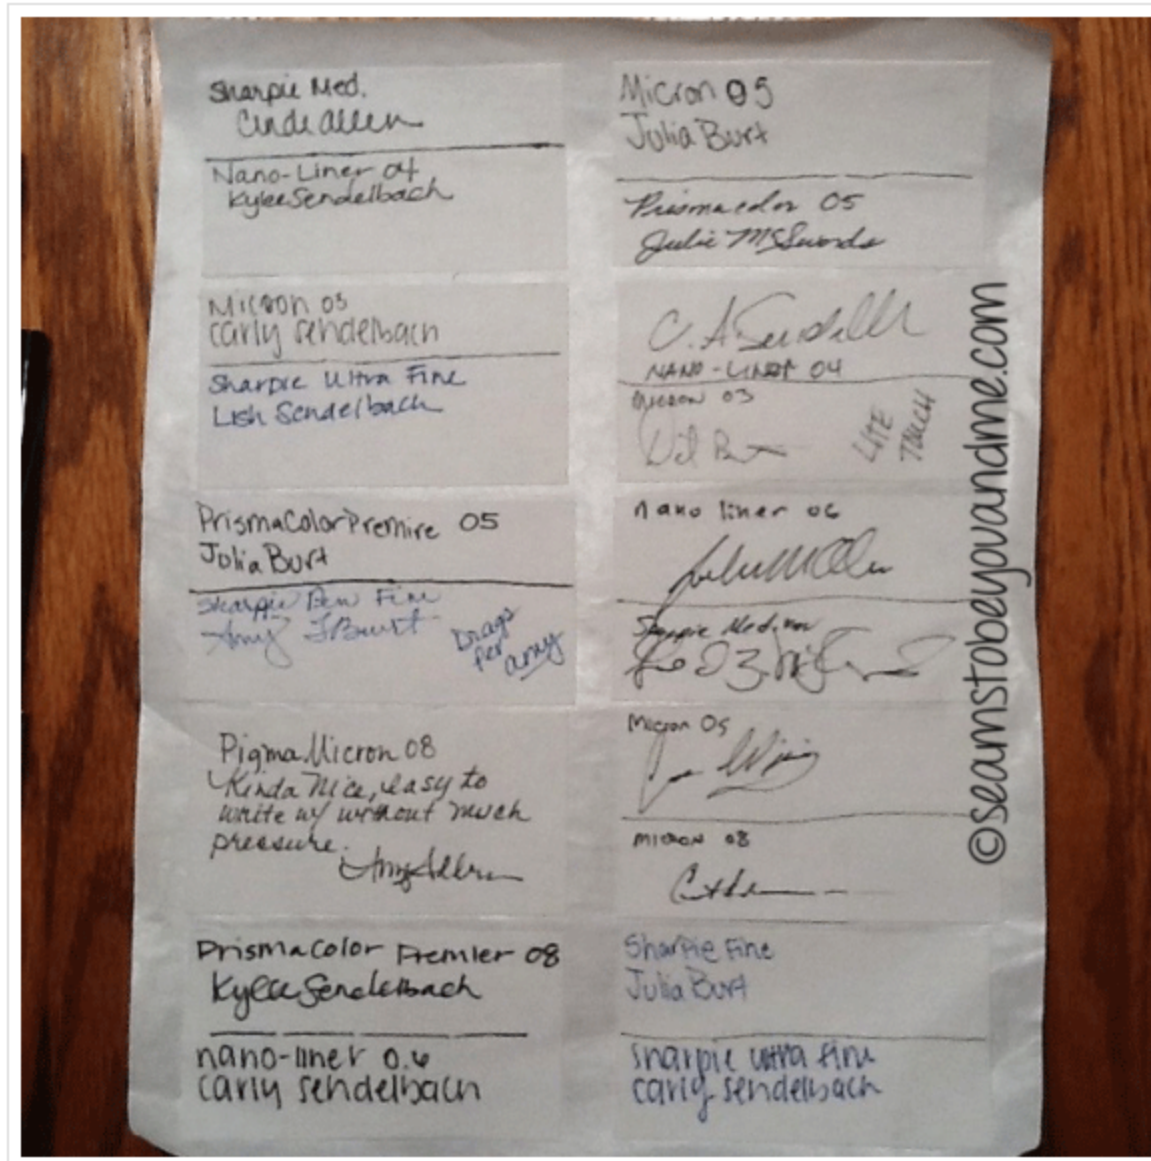 Sharpie Med.
Cinde Allen
Nano-Liner 04
Kylee Sendelbach
Micron 03
Carly Sendelbach
Sharpie Ultra Fine
Lish Sendelbach
PrismaColor Premire 05
Julia Burt
Sharpie Pen Fine
Amy J Burt
Drags
per
amy
Pigma Micron 08
Kinda Nice, easy to
write w/ without much
pressure.
Amy Allen
PrismaColor Premier 08
Kylee Sendelbach
nano-liner 0.6
carly sendelbach
Micron 05
Julia Burt
Prismacolor 05
Julie McSwords
C. A.
NANO-LINER 04
micron 03
LITE
TOUCH
nano liner 06
Sharpie Medium
Micron 05
MICRON 08
Sharpie Fine
Julia Burt
sharpie ultra fine
carly sendelbach
©seamstobeyouandme.com